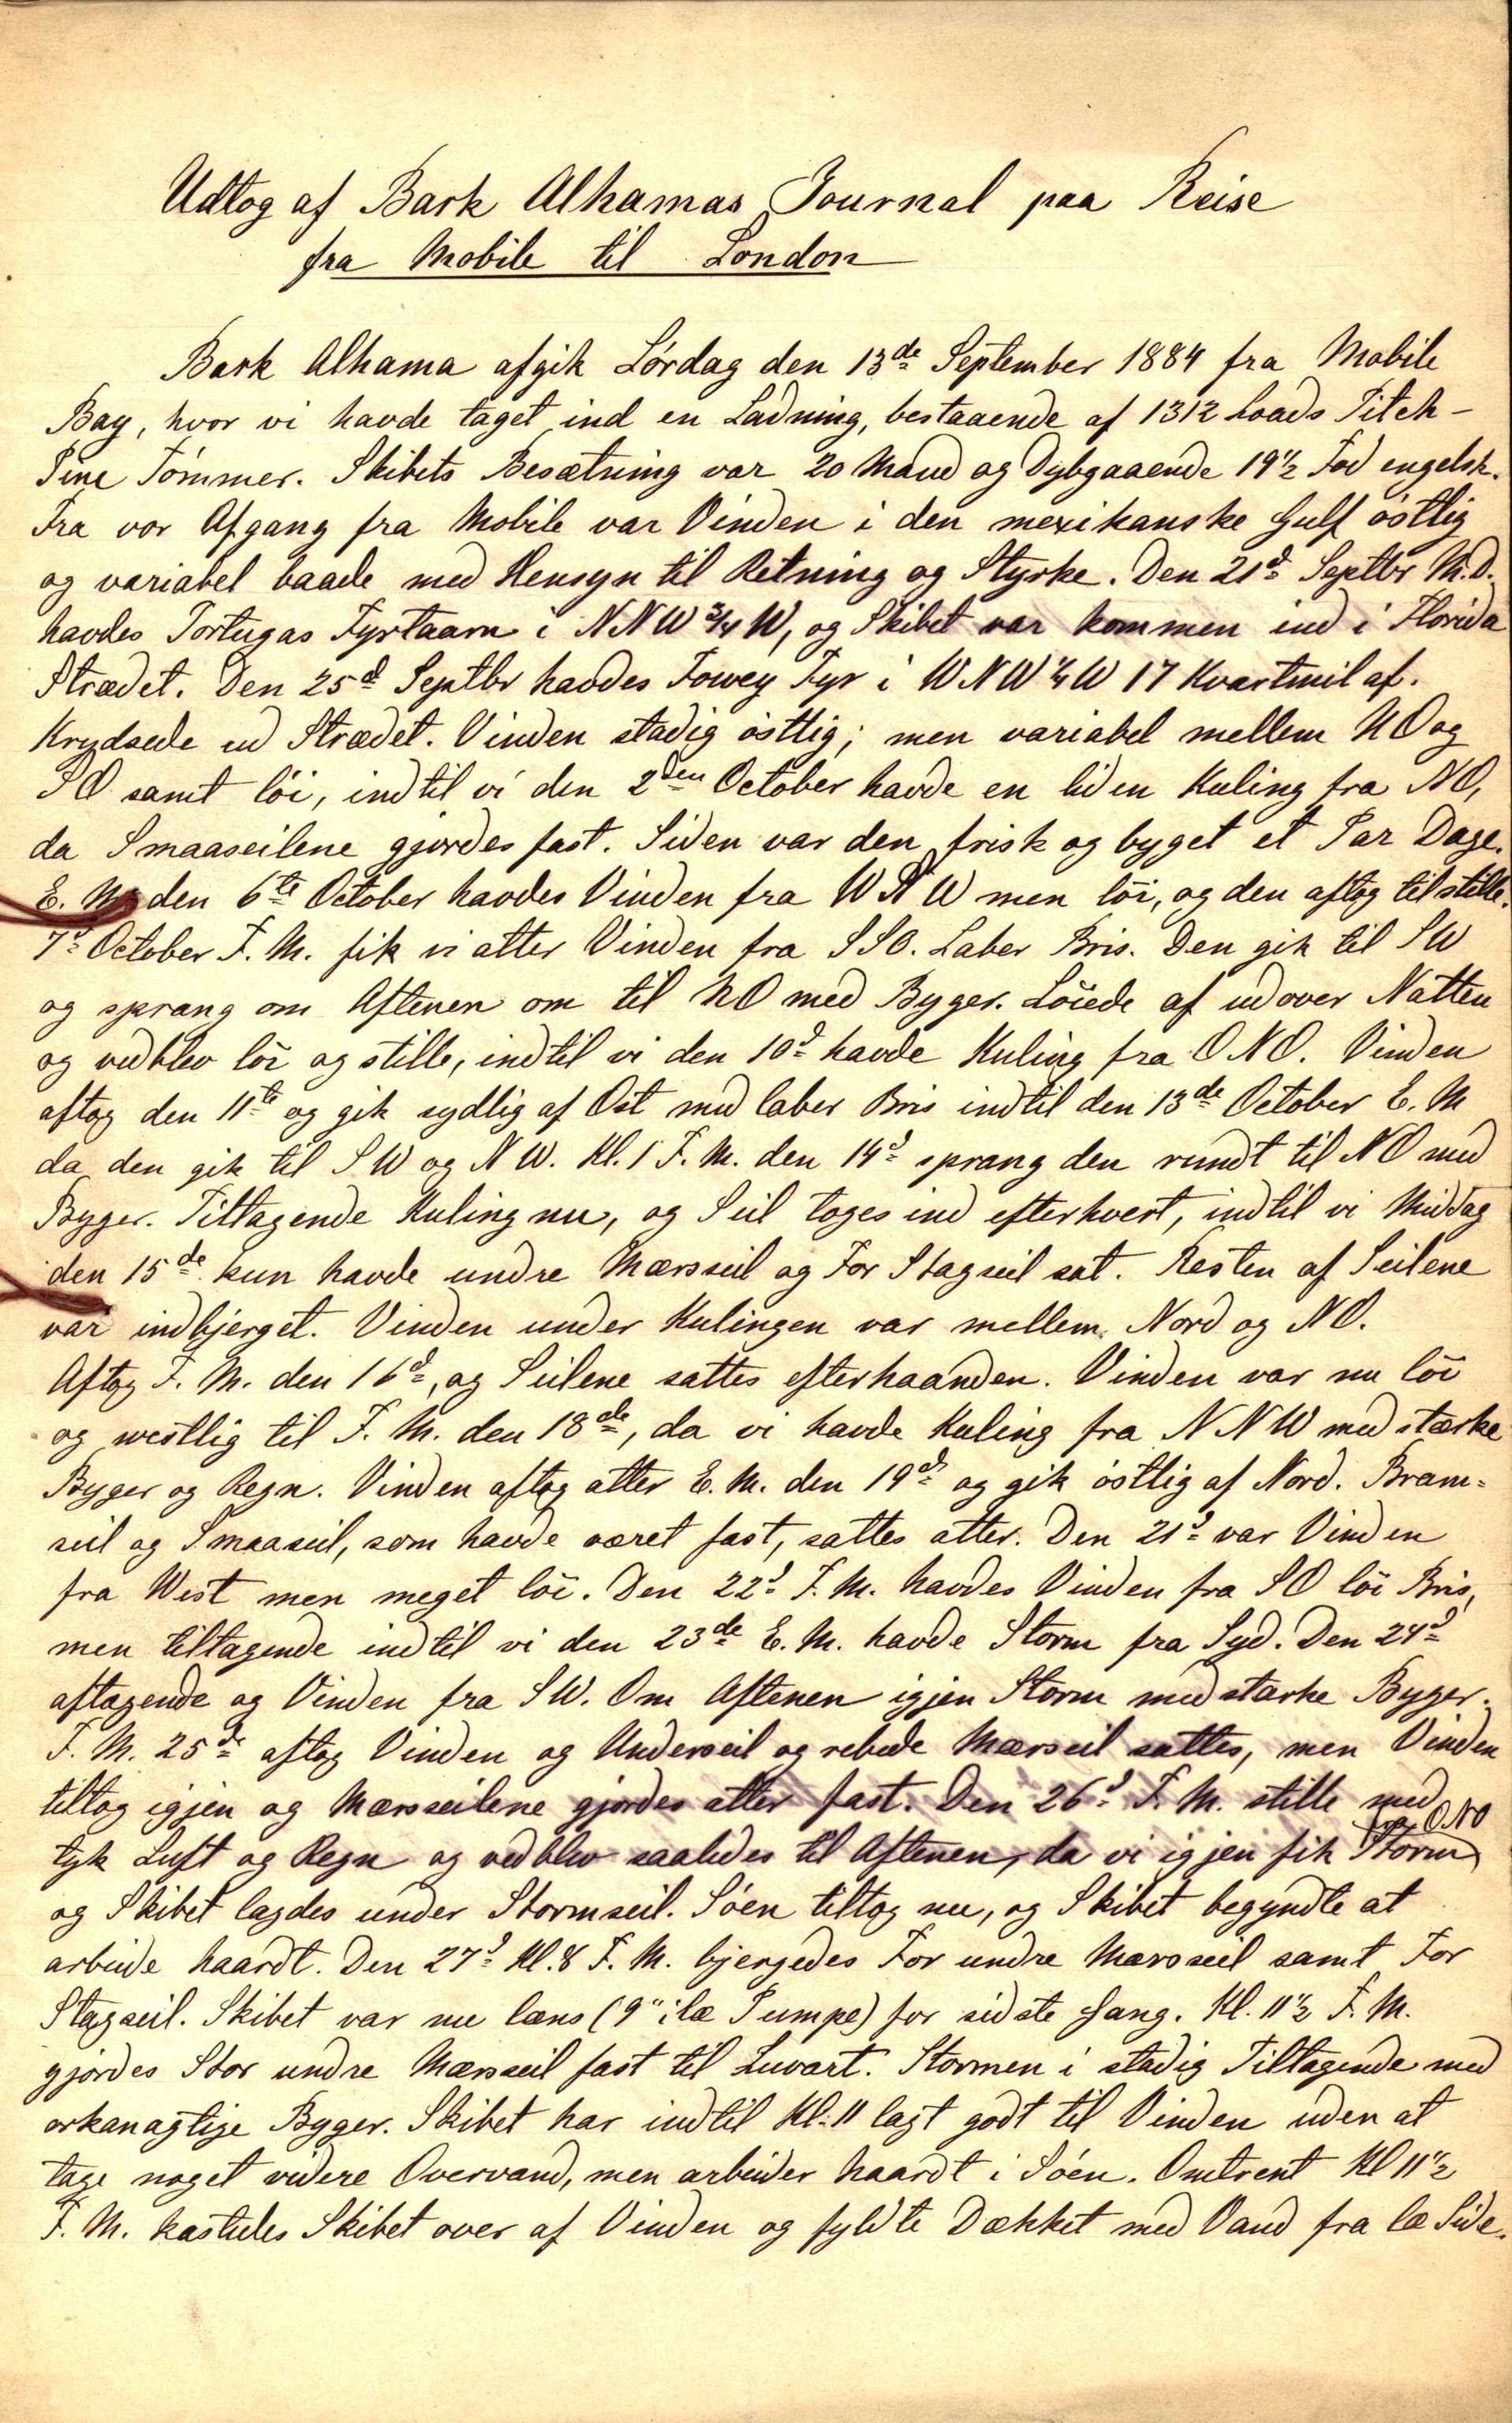 Udtog af Bark Alhamas Journal paa Reise
fra Mobile til London
Bark Alhama afgik Lórdag den 13de September 1884 fra Mobile
Bay, hvor vi havde taget ind en Ladning, bestaaende af 1312 Loads Pitch-
Pine Tómmer. Skibets Besætning var 20 Mand og Dybgaaende 19½ Fod engelsk.
Fra vor Afgang fra Mobile var Vinden i den mexikanske Gulf óstlig
og variabel baade med Hensyn til Retning og Styrke. Den 21d Septbr M.D.
havdes Tortugas Fyrtaarn i NNW ¾ W, og Skibet var kommen ind i Florida
Strædet. Den 25d Septbr havdes Fowey Fyr i WNW ¼ W 17 Kvartmil af.
Krydsede ud Strædet. Vinden stadig óstlig; men variabel mellem NO og
SO samt lói, indtil vi den 2den October havde en liden Kuling fra NO,
da Smaaseilene gjordes fast. Siden var den frisk og byget et Par Dage.
E. M. den 6te October havdes Vinden fra WNW men lói, og den aftog til stille.
7d October F. M. fik vi atter Vinden fra SSO. Laber Bris. Den gik til SW
og sprang om Aftenen om til NO med Byger. Lóiede af udover Natten
og vedblev lói og stille, indtil vi den 10d havde Kuling fra ONO. Vinden
aftog den 11te og gik sydlig af Ost med laber Bris indtil den 13de October E. M
da den gik til SW og NW. Kl. 1 F. M. den 14d sprang den rundt til NO med
Byger. Tiltagende Kuling nu, og Seil toges ind efterhvert, indtil vi Middag
den 15de kun havde undre Mærsseil og For Stagseil sat. Resten af Seilene
var indbjerget. Vinden under Kulingen var mellem Nord og NO.
Aftog F. M. den 16d, og Seilene sattes efterhaanden. Vinden var nu lói
og westlig til F. M. den 18de, da vi havde Kuling fra NNW med stærke
Byger og Regn. Vinden aftog atter E. M. den 19de og gik óstlig af Nord. Bram=
seil og Smaaseil, som havde været fast, sattes atter. Den 21d var Vinden
fra West men meget lói. Den 22d F. M. havdes Vinden fra SO lói Bris,
men tiltagende indtil vi den 23de E. M. havde Storm fra Syd. Den 24d
aftagende og Vinden fra SW. Om Aftenen igjen Storm med stærke Byger.
F. M. 25de aftog Vinden og Underseil og rebede Mærsseil sattes, men Vinden
tiltog igjen og Mærsseilene gjordes atter fast. Den 26d F. M. stille med
tyk Luft og Regn og vedblev saaledes til Aftenen, da vi igjen fik Storm fra ONO
og Skibet lagdes under Stormseil. Sóen tiltog nu, og Skibet begyndte at
arbeide haardt. Den 27d Kl. 8 F. M. bjergedes For undre Mærsseil samt For
Stagseil. Skibet var nu læns (9" i læ Pumpe) for sidste Gang. Kl. 11½ F. M.
gjordes Stor undre Mærsseil fast til Luvart. Stormen i stadig Tiltagende med
orkanagtige Byger. Skibet har indtil Kl. 11 lagt godt til Vinden uden at
tage noget videre Overvand, men arbeider haardt i Sóen. Omtrent Kl 11½
F. M. kastedes Skibet over af Vinden og fyldte Dækket med Vand fra læ Side.